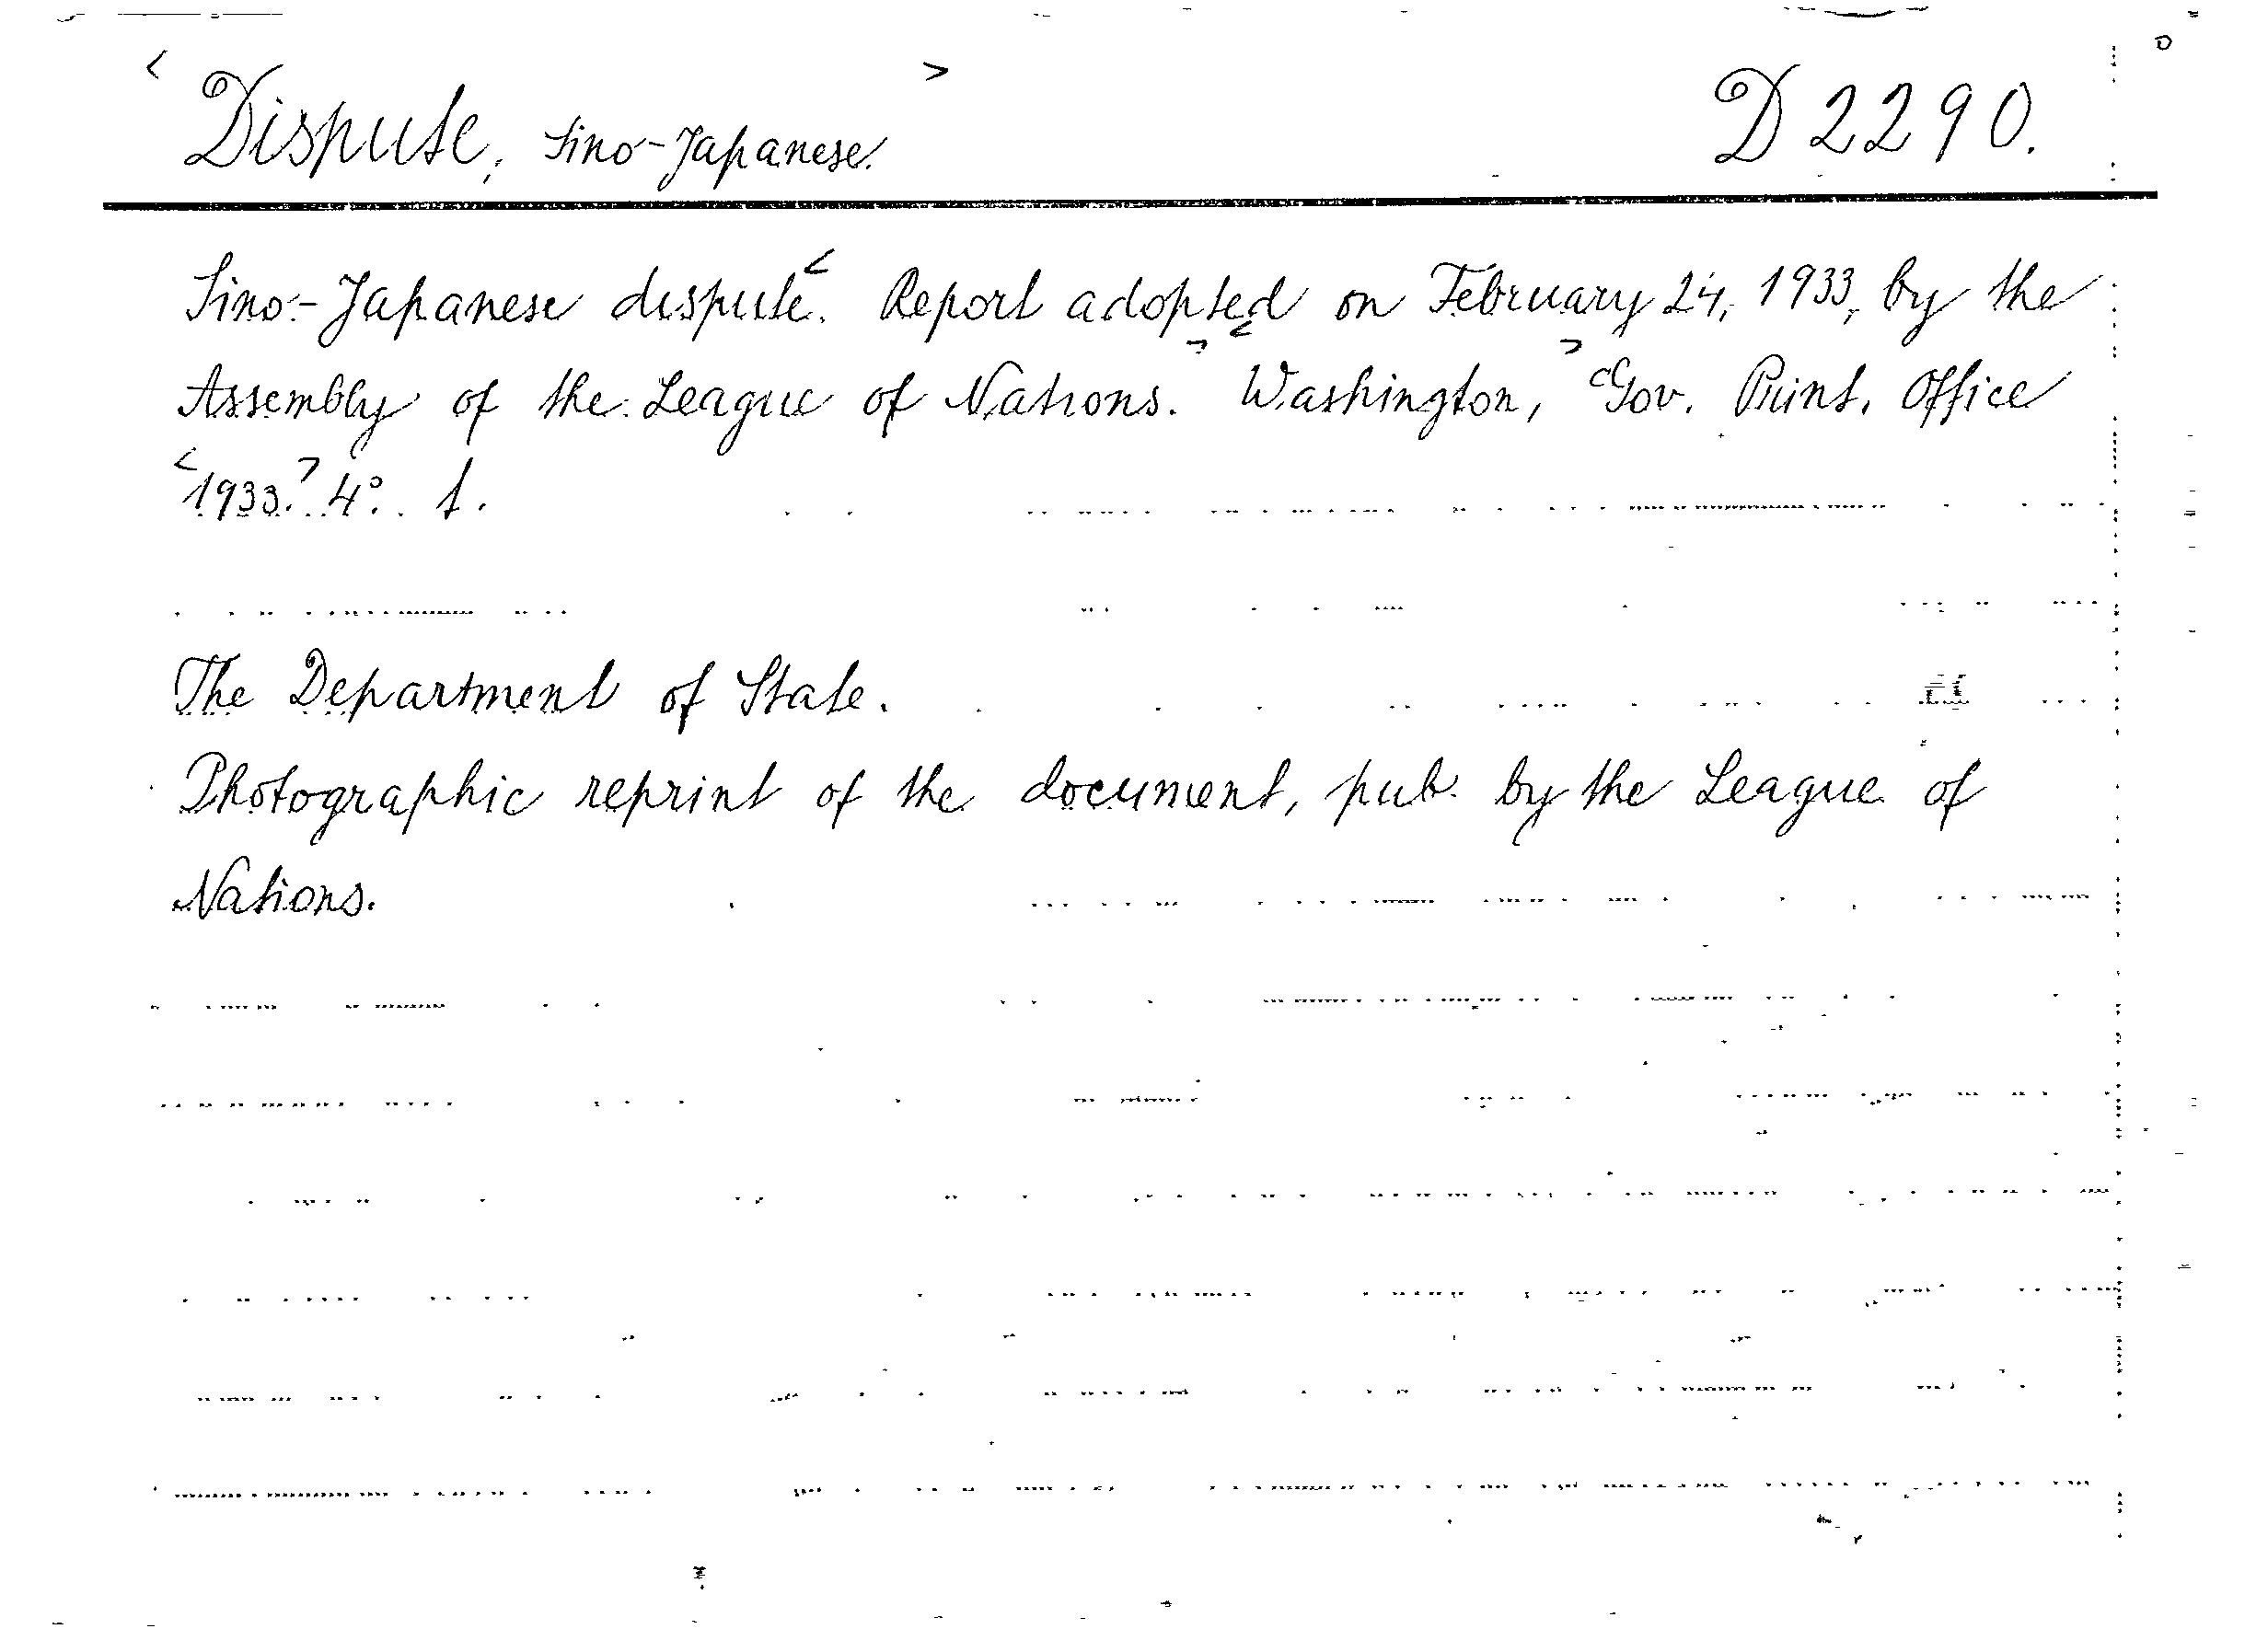 Dispute, Sino-Japanese. D 2290.
Sino-Japanese dispute. Report adopted on February 24, 1933, by the
Assembly of the League of Nations. Washington, Gov. Print. Office
1933. 4°. f.
The Department of State.
Photographic reprint of the document, pub. by the League of
Nations.